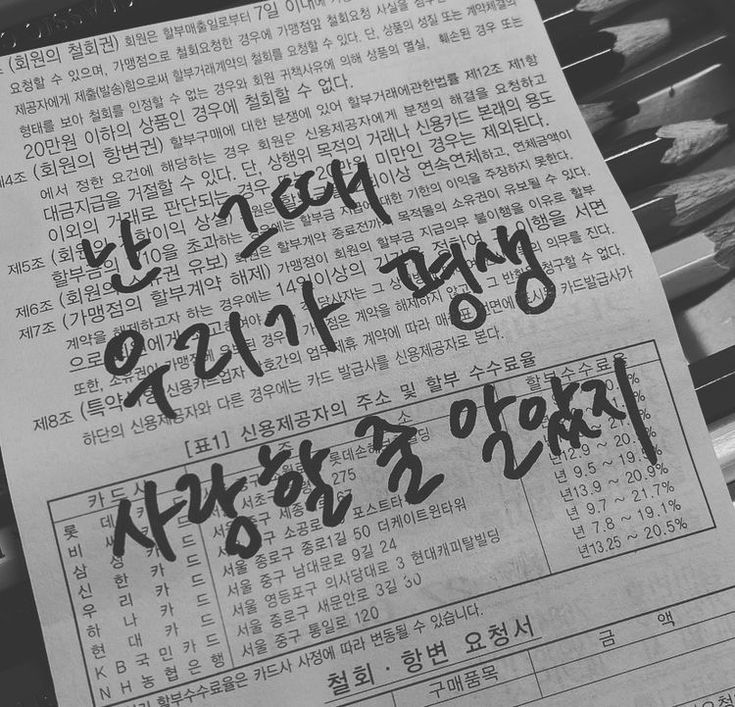 (회원의 철회권) 회원은 할부매출일로부터 7일 이내에
요청할 수 있으며, 가맹점으로 철회요청한 경우에 가맹점앞 철회요청 사실을
제공자에게 제출(발송)함으로써 할부거래계약의 철회를 요청할 수 있다. 단, 상품의 성질 또는 계약체결의
형태를 보아 철회를 인정할 수 없는 경우와 회원 귀책사유에 의해 상품의 멸실, 훼손된 경우 또는
20만원 이하의 상품인 경우에 철회할 수 없다.
제4조 (회원의 항변권) 할부구매에 대한 분쟁에 있어 할부거래에관한법률 제12조 제1항
에서 정한 요건에 해당하는 경우 회원은 신용제공자에게 분쟁의 해결을 요청하고
대금지급을 거절할 수 있다. 단, 상행위 목적의 거래나 신용카드 본래의 용도
이외의 거래로 판단되는 경우 미만인 경우는 제외된다.
제5조 이상 연속연체하고, 연체금액이
할부금의 /10을 초과하는 경우에는 할부금 기한의 이익을 주장하지 못한다.
제6조 (회원 유보) 할부계약 종료전까지 목적물의 소유권이 유보될 수 있다.
제7조 (가맹점의 할부계약 해제) 가맹점이 회원의 할부금 지급의무 불이행을 이유로 할부
계약을 해제하고자 하는 경우에는 14일이상의 기간을 이행을 서면
으로 의무를 진다.
또한, 계약을 해제하지 않고 청구할 수 없다.
제8조 (특약 신용카드업자 업무제휴 계약에 따라 카드발급사가
하단의 신용제공자와 다른 경우에는 카드 발급사를 신용제공자로 본다.
난 그때
우리가 평생
사랑할 줄 알았지
[표1] 신용제공자의 주소 및 할부 수수료율
카드사 주 소 할부수수료율
롯데카드
비씨카드
삼성카드 서울 중구 세종
신한카드 서울 중구 소공로 포스트타워 년 9.5 ~
우리카드 서울 종로구 종로1길 50 더케이트윈타워 년13.9 ~ 20.9%
하나카드 서울 중구 남대문로 9길 24 년 9.7 ~ 21.7%
현대카드 서울 영등포구 의사당대로 3 현대캐피탈빌딩 년 7.8 ~ 19.1%
KB국민카드 서울 종로구 새문안로 3길 30 년13.25 ~ 20.5%
NH농협은행 서울 중구 통일로 120
할부수수료율은 카드사 사정에 따라 변동될 수 있습니다.
철회 · 항변 요청서
구매품목 금 액